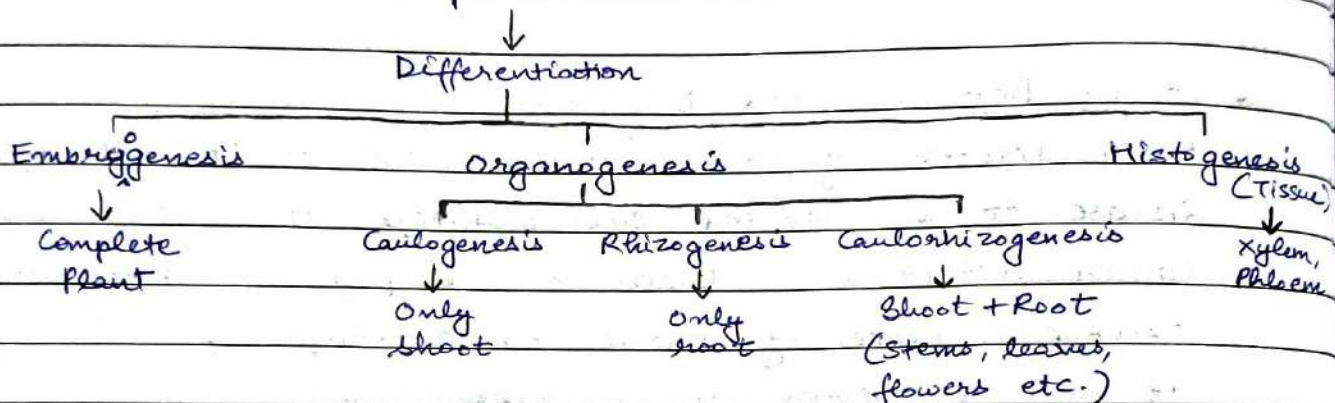 Differentiation
Embryogenesis Organogenesis Histogenesis
(Tissue)
Complete Caulogenesis Rhizogenesis Caulorhizogenesis Xylem,
Plant Phloem
Only only Shoot + Root
shoot root (stems, leaves,
flowers etc.)